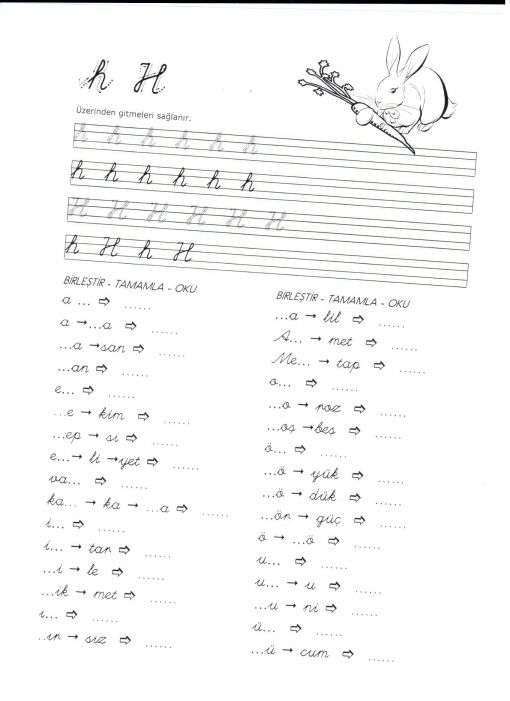 h H
Üzerinden gitmeleri sağlanır.
h h h h h h
h h h h h h
H H H H H H
h H h H
BİRLEŞTİR - TAMAMLA - OKU
a ... ⇨ ......
a → ...a ⇨ ......
...a → san ⇨ ......
...an ⇨ ......
e... ⇨ ......
...e → kim ⇨ ......
...ep → si ⇨ ......
e... → li → yet ⇨ ......
va... ⇨ ......
ka... → ka → ...a ⇨ ......
i... ⇨ ......
i... → tar ⇨ ......
...i → le ⇨ ......
...ik → met ⇨ ......
ı... ⇨ ......
...ır → sız ⇨ ......
BİRLEŞTİR - TAMAMLA - OKU
...a → lil ⇨ ......
A... → met ⇨ ......
Me... → tap ⇨ ......
o... ⇨ ......
...o → roz ⇨ ......
...oş → beş ⇨ ......
ö... ⇨ ......
...ö → yük ⇨ ......
...ö → dük ⇨ ......
...ör → güç ⇨ ......
ö → ...ö ⇨ ......
u... ⇨ ......
u... → u ⇨ ......
...u → ni ⇨ ......
ü... ⇨ ......
...ü → cum ⇨ ......